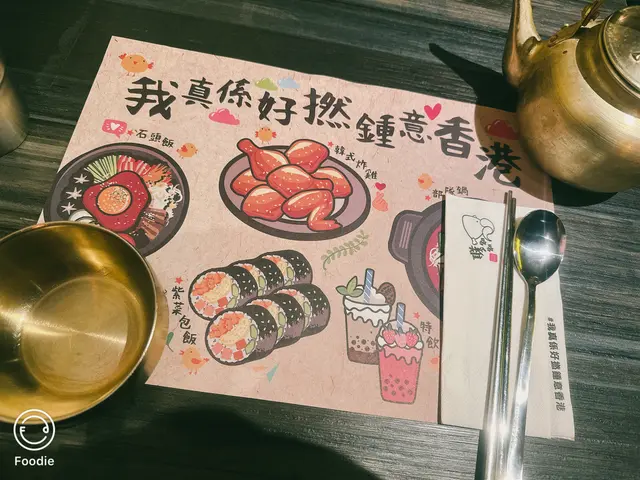 我真係好撚鍾意香港
石頭飯
韓式炸雞
部隊鍋
紫菜包飯
特
飲
雞
#我真係好撚鍾意香港
Foodie